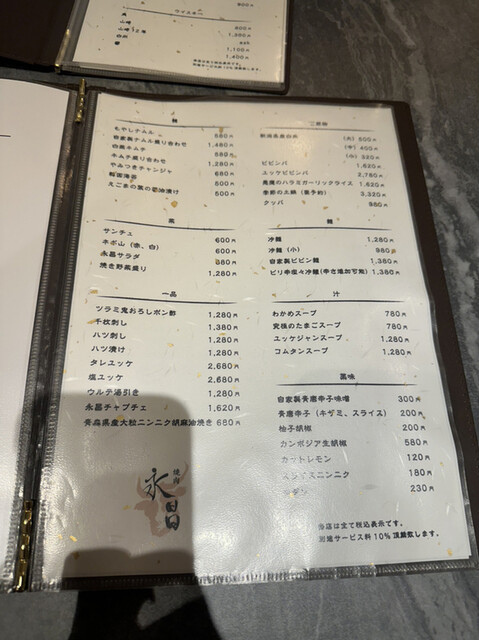 ウイスキー
山崎
山崎12年
白州
響
800円
1,200円
ask
1,100円
1,400円
もやしナムル
自家製ナムル盛り合わせ 1,480円
白菜キムチ 580円
キムチ盛り合わせ
やみつきチャンジャ 680円
韓国海苔 600円
えごまの葉の醤油漬け 600円
菜
サンチュ 600円
ネギ山(赤、白) 600円
永昌サラダ 780円
焼き野菜盛り 1,280円
一品
ツラミ鬼おろしポン酢 1,280円
千枚刺し 1,380円
ハツ刺し 1,280円
ハツ漬け 1,280円
タレユッケ 2,680円
塩ユッケ 2,680円
ウルテ湯引き 1,280円
永昌チャプチェ 1,620円
青森県産大粒ニンニク胡麻油焼き 680円
ご飯物
新潟県産白米 (大) 600円
(中) 400円
(小) 320円
ビビンバ 1,620円
ユッケビビンバ 2,760円
悪魔のハラミガーリックライス 1,620円
季節の土鍋(要予約) 3,320円
クッパ 980円
麺
冷麺 1,280円
冷麺(小) 980円
自家製ビビン麺 1,380円
ピリ辛坦々冷麺(辛さ追加可能) 1,380円
汁
わかめスープ 780円
究極のたまごスープ 780円
ユッケジャンスープ 1,280円
コムタンスープ 1,280円
薬味
自家製青唐辛子味噌 300円
青唐辛子(キザミ、スライス) 200円
柚子胡椒 200円
カンボジア生胡椒 580円
カットレモン 120円
スライスニンニク 180円
230円
焼肉
永昌
当店は全て税込表示です。
別途サービス料10%頂戴致します。